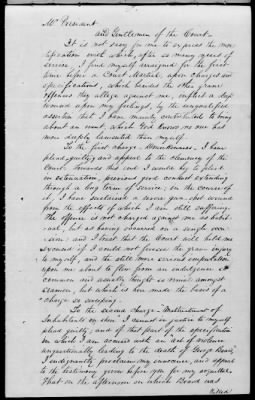 Mr President
and Gentlemen of the Court
It is not easy for me to express the mor-
tification with which, after so many years of
service, I find myself arraigned for the first
time before a Court Martial, upon charges and
specifications, which besides the other grave
offences they allege against me, inflict a deep
wound upon my feelings, by the unqualified
assertion that I have mainly contributed to bring
about an event, which God knows no one has
more deeply lamented than myself.
To the first charge, Drunkenness, I have
plead guilty, and appeal to the clemency of the
Court. Towards this end I would beg to plead
in extenuation, previous good conduct extending
through a long term of service; in the course of
it, I have sustained a severe gun shot wound
from the effects of which I am still suffering.
The offence is not charged against me as habit-
ual, but as having occurred on a single occa-
sion; and I trust that the Court will hold me
excused if I could not foresee the grave injury
to myself, and the still more serious imputation
upon me about to flow from an indulgence so
common and usually thought so venial amongst
seamen, but which is here made the basis of a
charge so sweeping.
To the second charge, Maltreatment of
Inhabitants on shore I cannot in justice to myself
plead guilty; and of that part of the specification
in which I am accused with an act of violence
unquestionably leading to the death of George Board,
I indignantly proclaim my innocence, and appeal
to the testimony given before you for my acquittal.
That on the afternoon on which Board was
killed